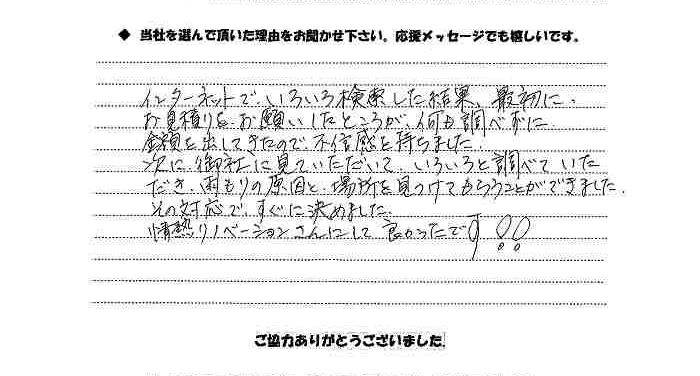 ◆ 当社を選んで頂いた理由をお聞かせ下さい。応援メッセージでも嬉しいです。
インターネットで、いろいろ検索した結果、最初に、
お見積りを、お願いしたところが、何も調べずに
金額を出してきたので、不信感を持ちました。
次に、御社に見ていただいて、いろいろと調べていた
だき、雨もりの原因と、場所を見つけてもらうことができました。
その対応で、すぐに決めました。
情熱リノベーションさんにして良かったです!!
ご協力ありがとうございました